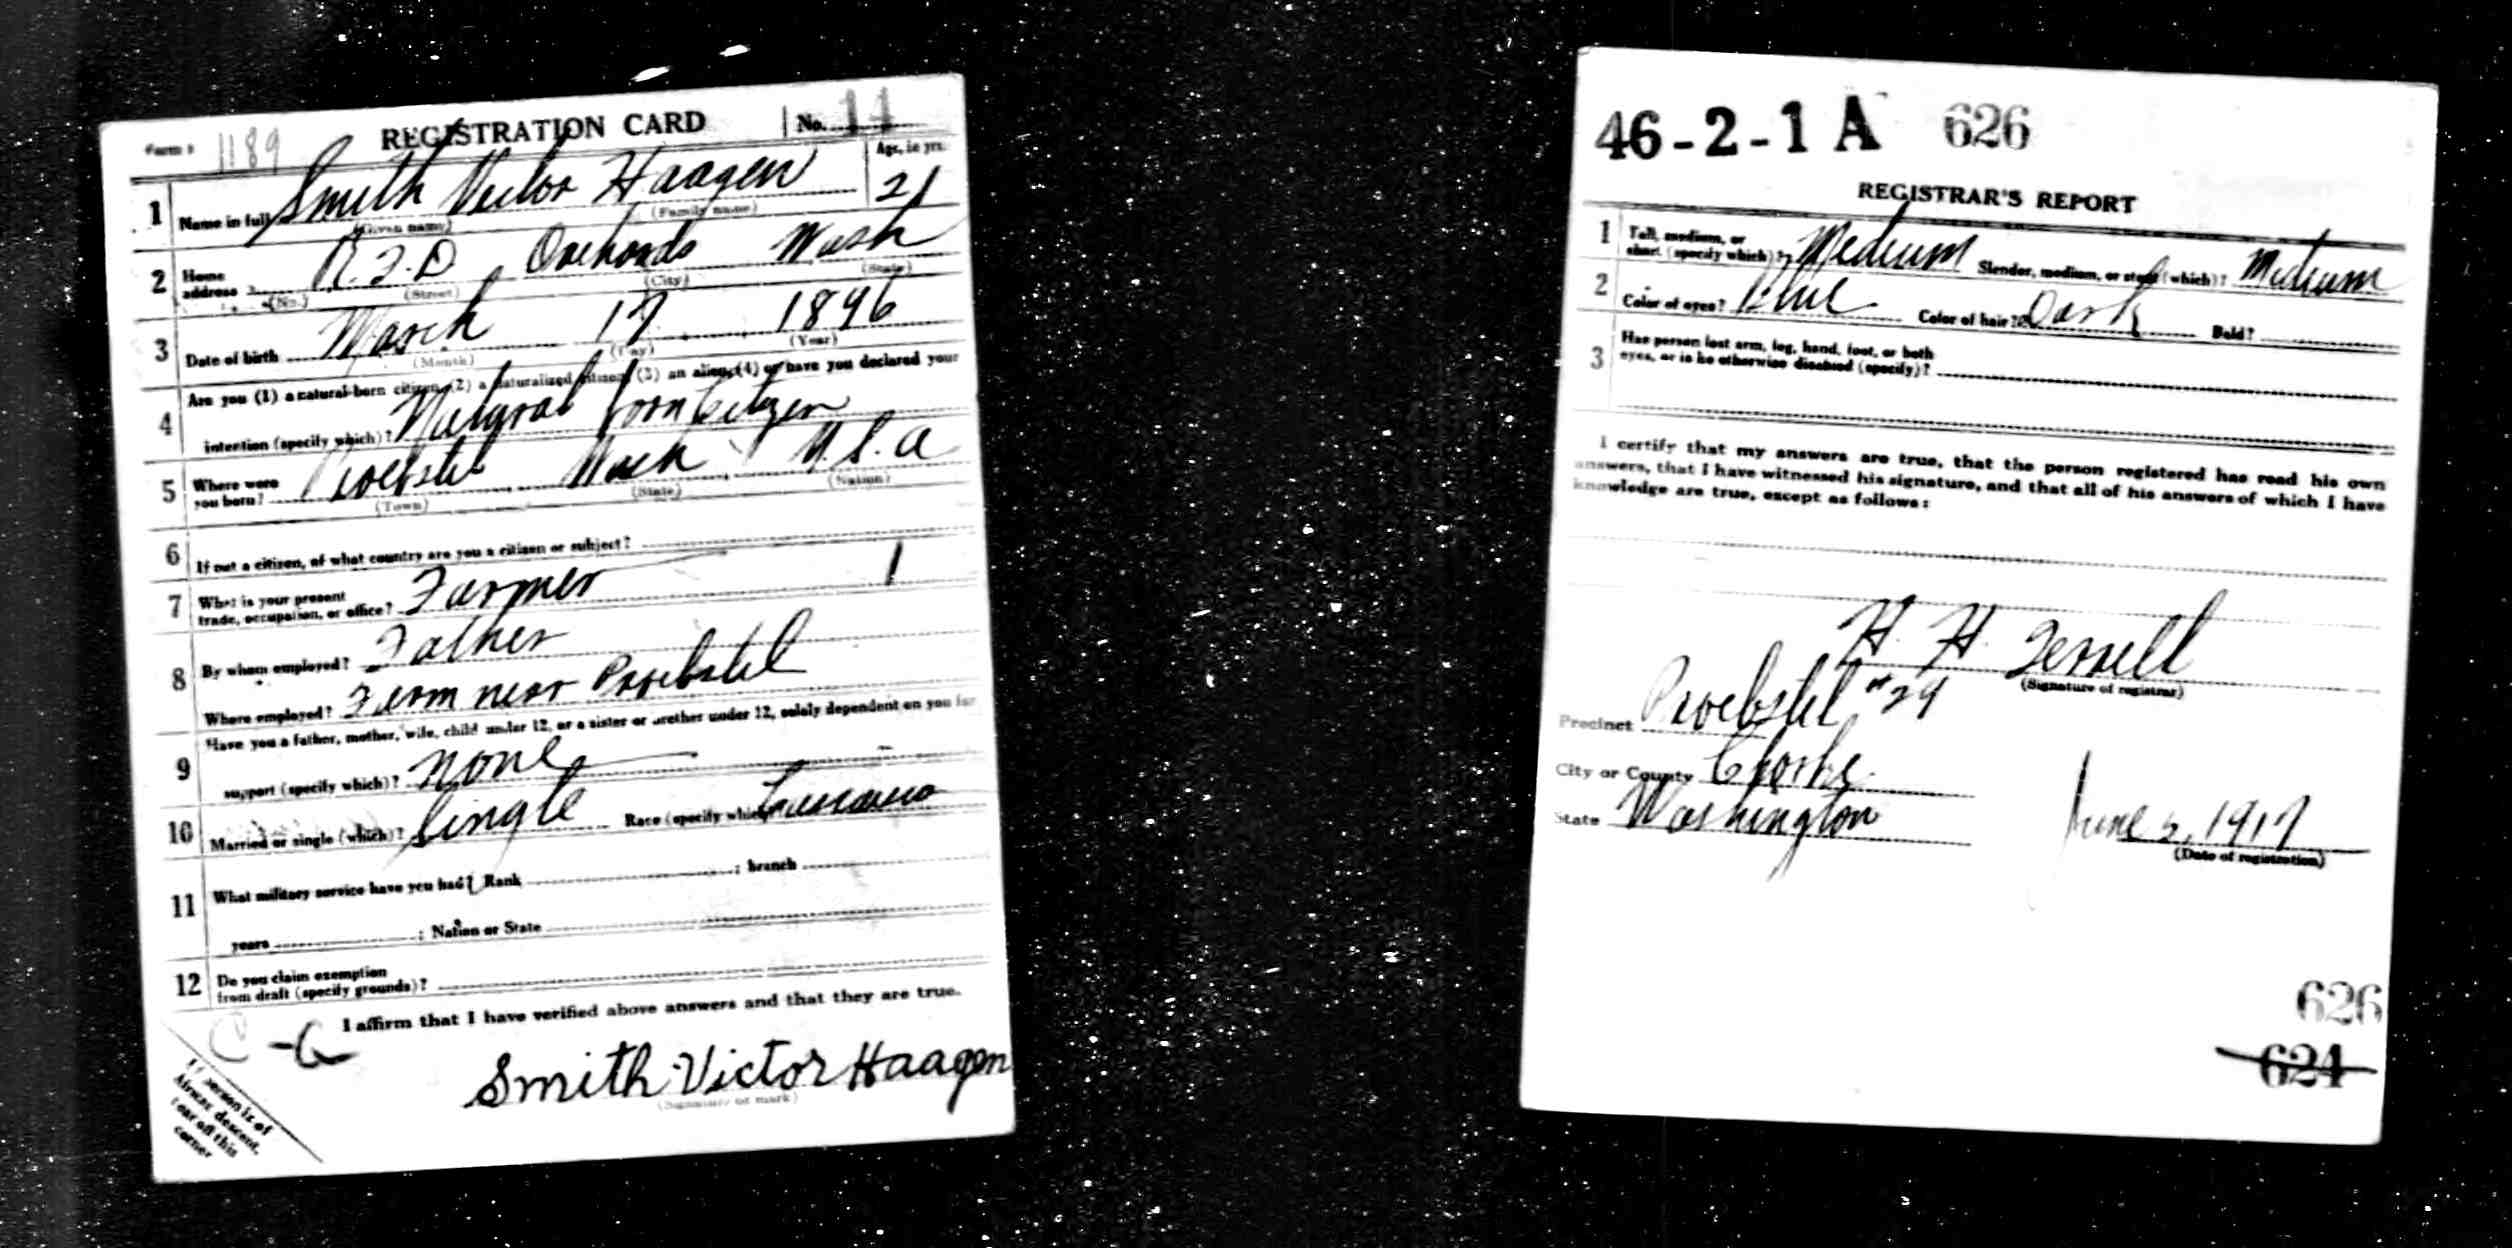 Form 1 1189 REGISTRATION CARD No. 14
1 Name in full Smith Victor Haagen Age, in yrs. 21
(Given name) (Family name)
2 Home address R.F.D Orchards Wash
(No.) (Street) (City) (State)
3 Date of birth March 17 1896
(Month) (Day) (Year)
4 Are you (1) a natural-born citizen, (2) a naturalized citizen, (3) an alien, (4) or have you declared your
intention (specify which)? Natural born Citizen
5 Where were you born? Proebstel Wash U.S.A
(Town) (State) (Nation)
6 If not a citizen, of what country are you a citizen or subject?
7 What is your present trade, occupation, or office? Farmer 1
8 By whom employed? Father
Where employed? Farm near Proebstel
9 Have you a father, mother, wife, child under 12, or a sister or brother under 12, solely dependent on you for
support (specify which)? none
10 Married or single (which)? Single Race (specify which)?
11 What military service have you had? Rank ; branch
years ; Nation or State
12 Do you claim exemption from draft (specify grounds)?
I affirm that I have verified above answers and that they are true.
Smith Victor Haagen
(Signature or mark)
If person is of
African descent,
tear off this
corner
46-2-1 A 626
REGISTRAR'S REPORT
1 Tall, medium, or short (specify which)? Medium Slender, medium, or stout (which)? Medium
2 Color of eyes? Blue Color of hair? Dark Bald?
3 Has person lost arm, leg, hand, foot, or both
eyes, or is he otherwise disabled (specify)?
I certify that my answers are true, that the person registered has read his own
answers, that I have witnessed his signature, and that all of his answers of which I have
knowledge are true, except as follows:
H. H. Terrell
(Signature of registrar)
Precinct Proebstel #24
City or County Clarke
State Washington June 5, 1917
(Date of registration)
626
624